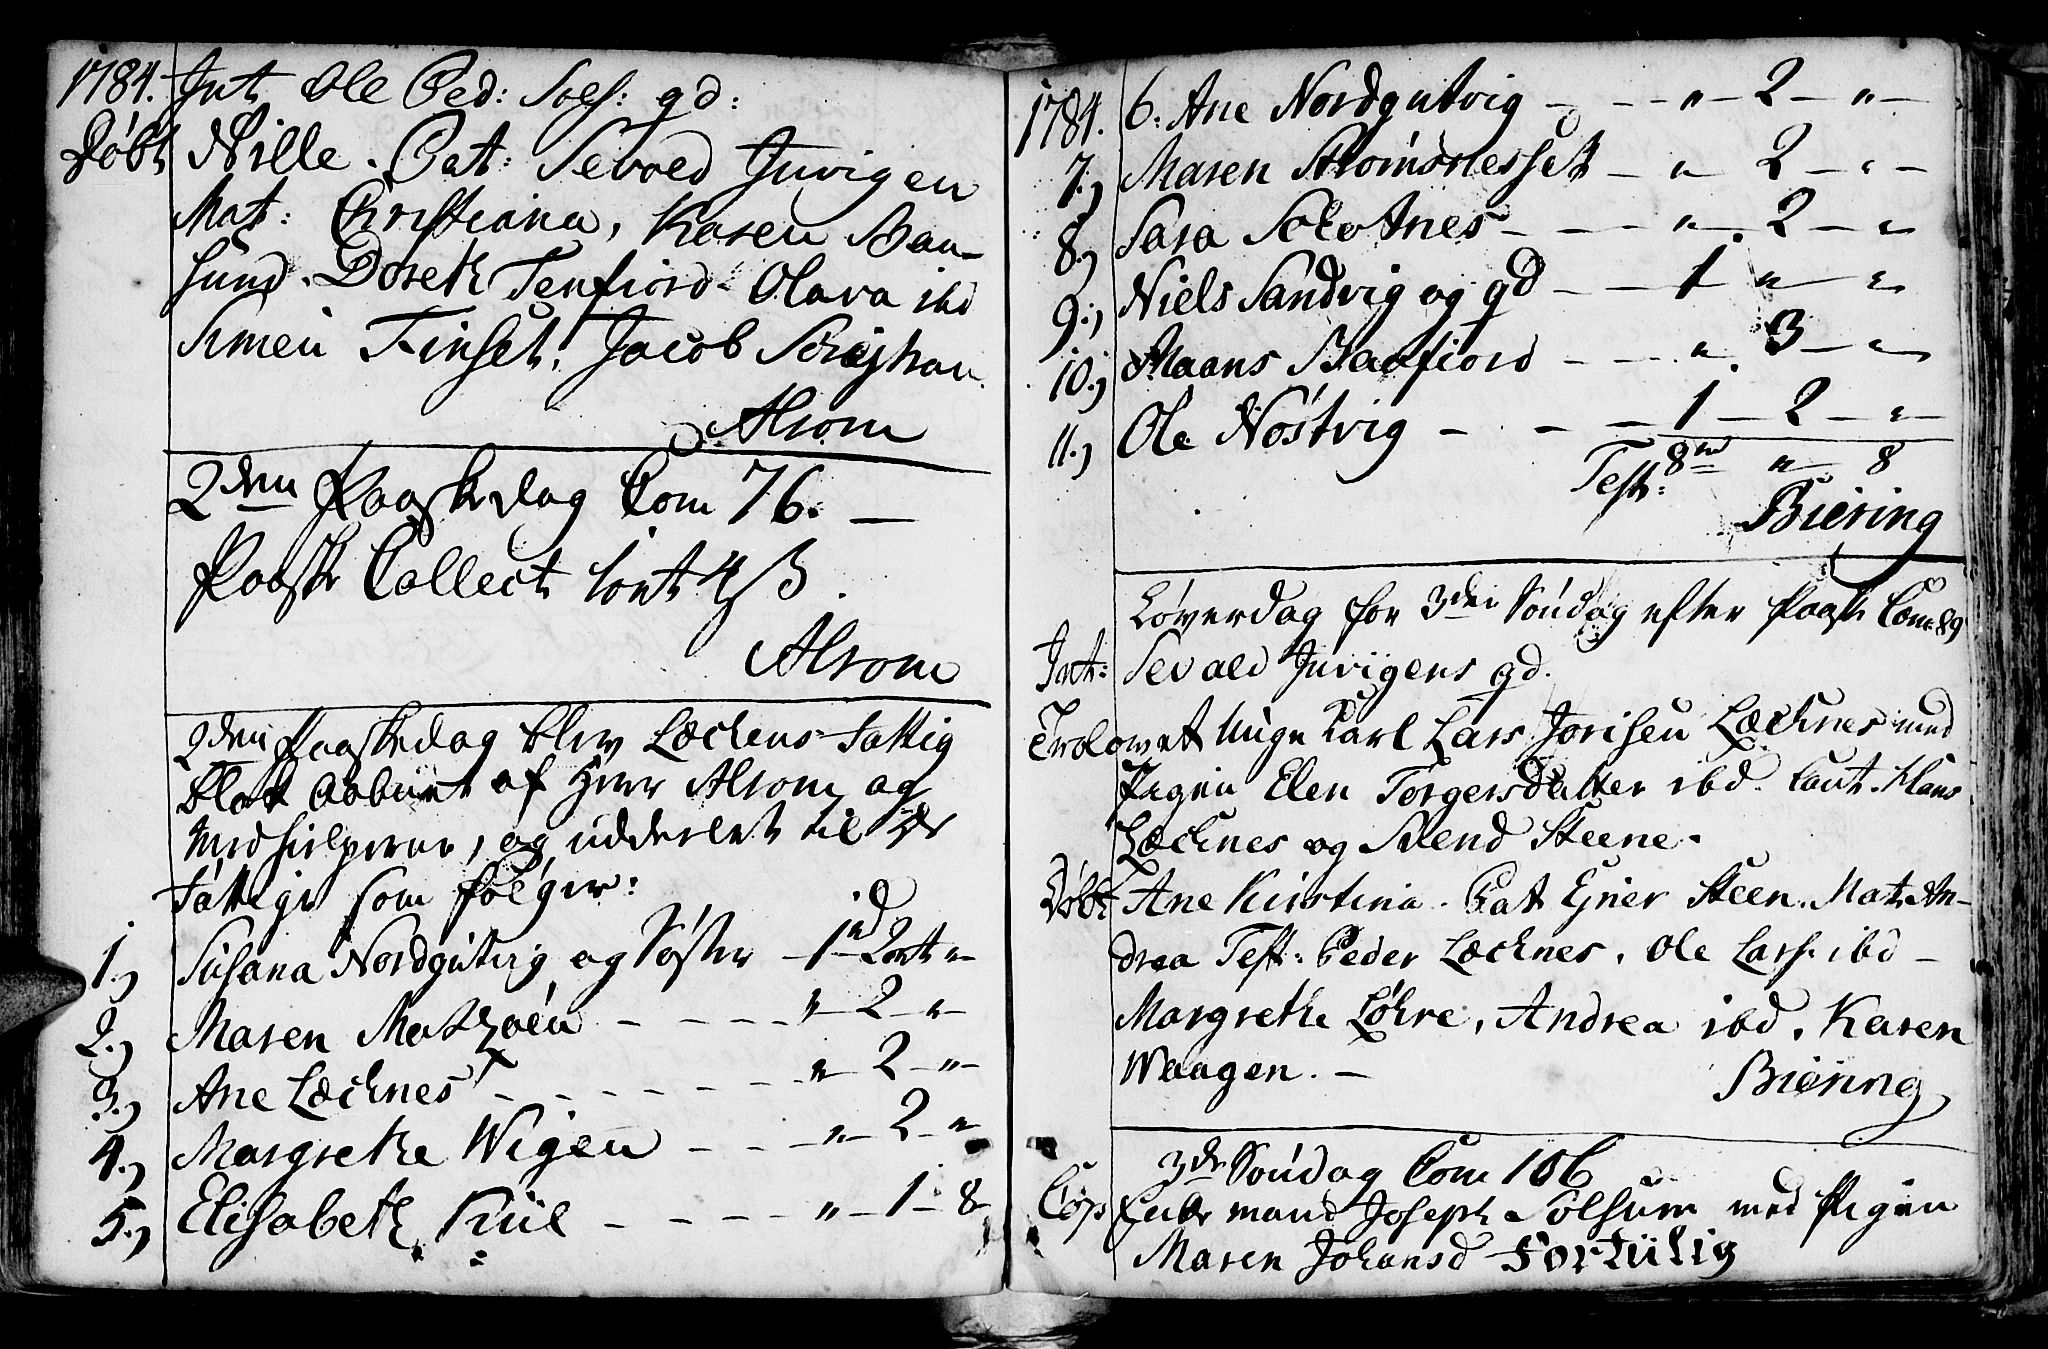 1784. Int Ole Ped: Sols: gd:
Døbt Nille. Pat: Sevoed Juvigen
Mat: Christiana, Karen Bau-
sund. Dorethe Tenfiord. Olava ibd
Simen Finset, Jacob
Alrom
2den Paaskedag Com 76. —
Paaske Collect 4 ß.
Alrom
2den Paaskedag blev Læchens Fattig
blok aabnet af Herr Alrom og
Medhielperne, og uddeelet til de
Fattige som følger:
1.) Susana Nordgutvig og Søster — 1 rd — 2 ort "
2.) Maren Matzøen — — — " — 2 — " —
3.) Ane Læcknes — — — " — 2 — " —
4.) Margrethe Wigen — — — " — 2 — "
5.) Elisabeth Kiil — — — — " — 1 — 8
1784. 6. Ane Nordgutvig — — — " — 2 — " —
7.) Maren Strømsnesset — " — 2 — " —
8.) Sara Solvtnes — — — " — 2 — "
9.) Niels Sandvig og gd — — 1 — " — "
10.) Maans Baafiord — — — " — 3 — "
11.) Ole Nøstvig — — — 1 — 2 — "
Test: 8 rd " — 8
Biering
Løverdag for 3die Søndag efter Paaske Com 89
Int: Sevald Juvigens gd.
Trolovet Unge Karl Lars Jonsen Læcknes med
Pigen Elen Torgersdatter ibd. Caut. Hans
Læcknes og Svend Steene.
Døbt Ane Kirstina. Pat Ejner Steen. Mat: An-
drea Test: Peder Læcknes, Ole Lars: ibd —
Margrethe Løhre, Andrea ibd, Karen
Waagen. —
Biering
3die Søndag Com 106
Cop Enke mand Joseph Solsum med Pigen
Maren Johansd